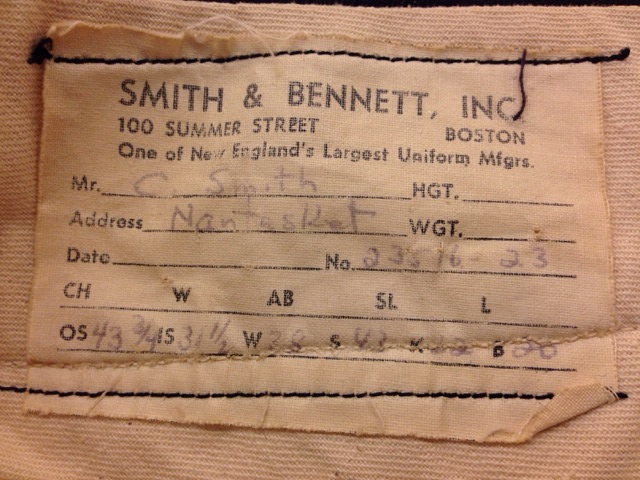 SMITH & BENNETT, INC.
100 SUMMER STREET BOSTON
One of New England's Largest Uniform Mfgrs.
Mr. C. Smith HGT.
Address Nantasket WGT.
Date No. 23516-23
CH W AB SL L
OS 43 3/4 IS 31 1/2 W 38 S 43 K 22 B 20